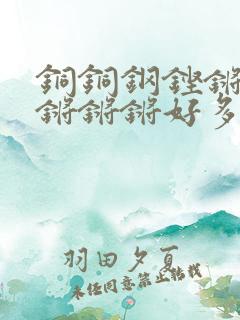 銅銅鋼鏗鏘
鏘鏘鏘好多
羽田夕夏
未经同意禁止转载